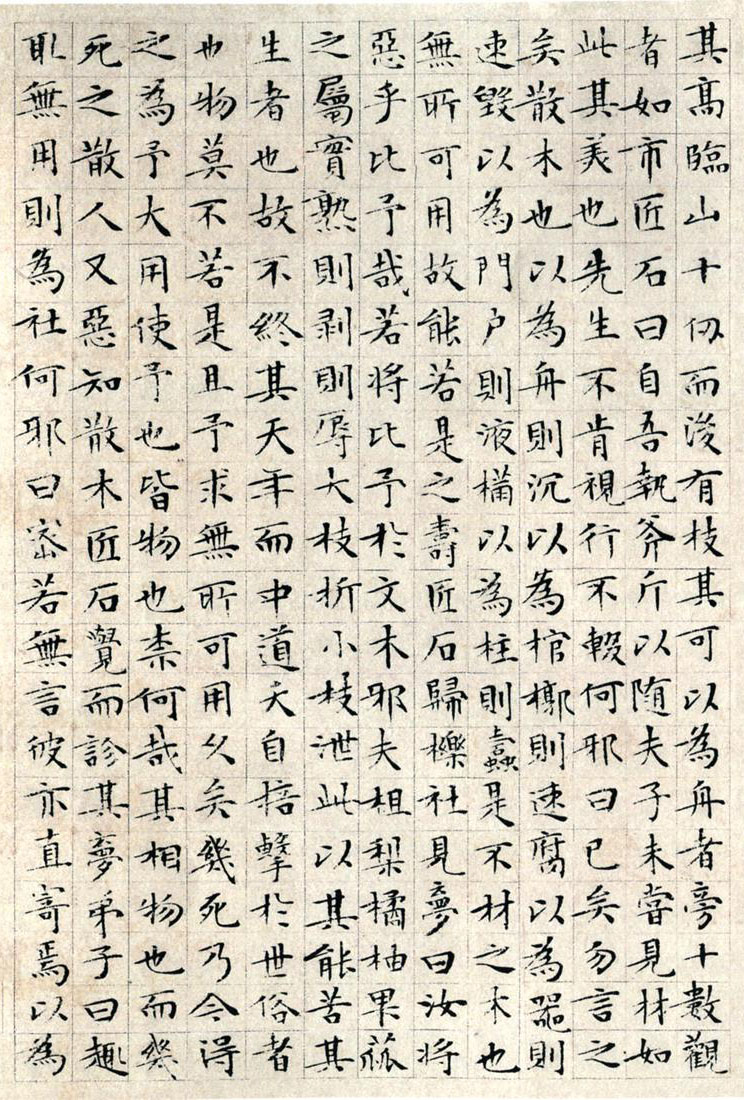 其高臨山十仞而後有枝其可以為舟者旁十數觀
者如市匠石曰自吾執斧斤以随夫子未嘗見材如
此其美也先生不肯視行不輟何邪曰已矣勿言之
矣散木也以為舟則沉以為棺槨則速腐以為器則
速毀以為門户則液樠以為柱則蠹是不材之木也
無所可用故能若是之壽匠石歸櫟社見夢曰汝將
惡乎比予哉若將比予於文木邪夫柤梨橘柚果蓏
之屬實熟則剥則辱大枝折小枝泄此以其能苦其
生者也故不終其天年而中道夭自掊擊於世俗者
也物莫不若是且予求無所可用久矣幾死乃今得
之為予大用使予也皆物也柰何哉其相物也而幾
死之散人又惡知散木匠石覺而診其夢弟子曰趣
取無用則為社何邪曰密若無言彼亦直寄焉以為